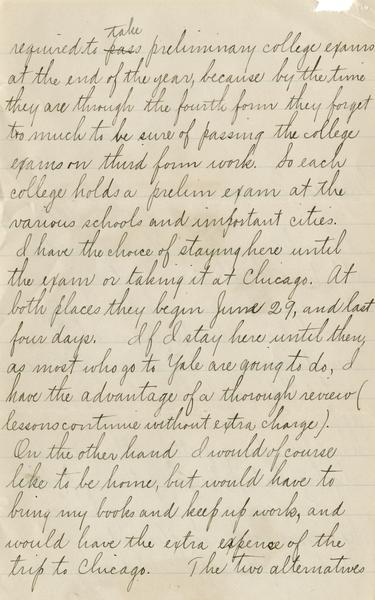 take
required to pass preliminary college exams
at the end of the year, because by the time
they are through the fourth form they forget
too much to be sure of passing the college
exams on third form work. So each
college holds a prelim exam at the
various schools and important cities.
I have the choice of staying here until
the exam or taking it at Chicago. At
both places they begin June 29, and last
four days. If I stay here until then,
as most who go to Yale are going to do, I
have the advantage of a thorough review (
lessons continue without extra charge).
On the other hand I would of course
like to be home, but would have to
bring my books and keep up work, and
would have the extra expense of the
trip to Chicago. The two alternatives